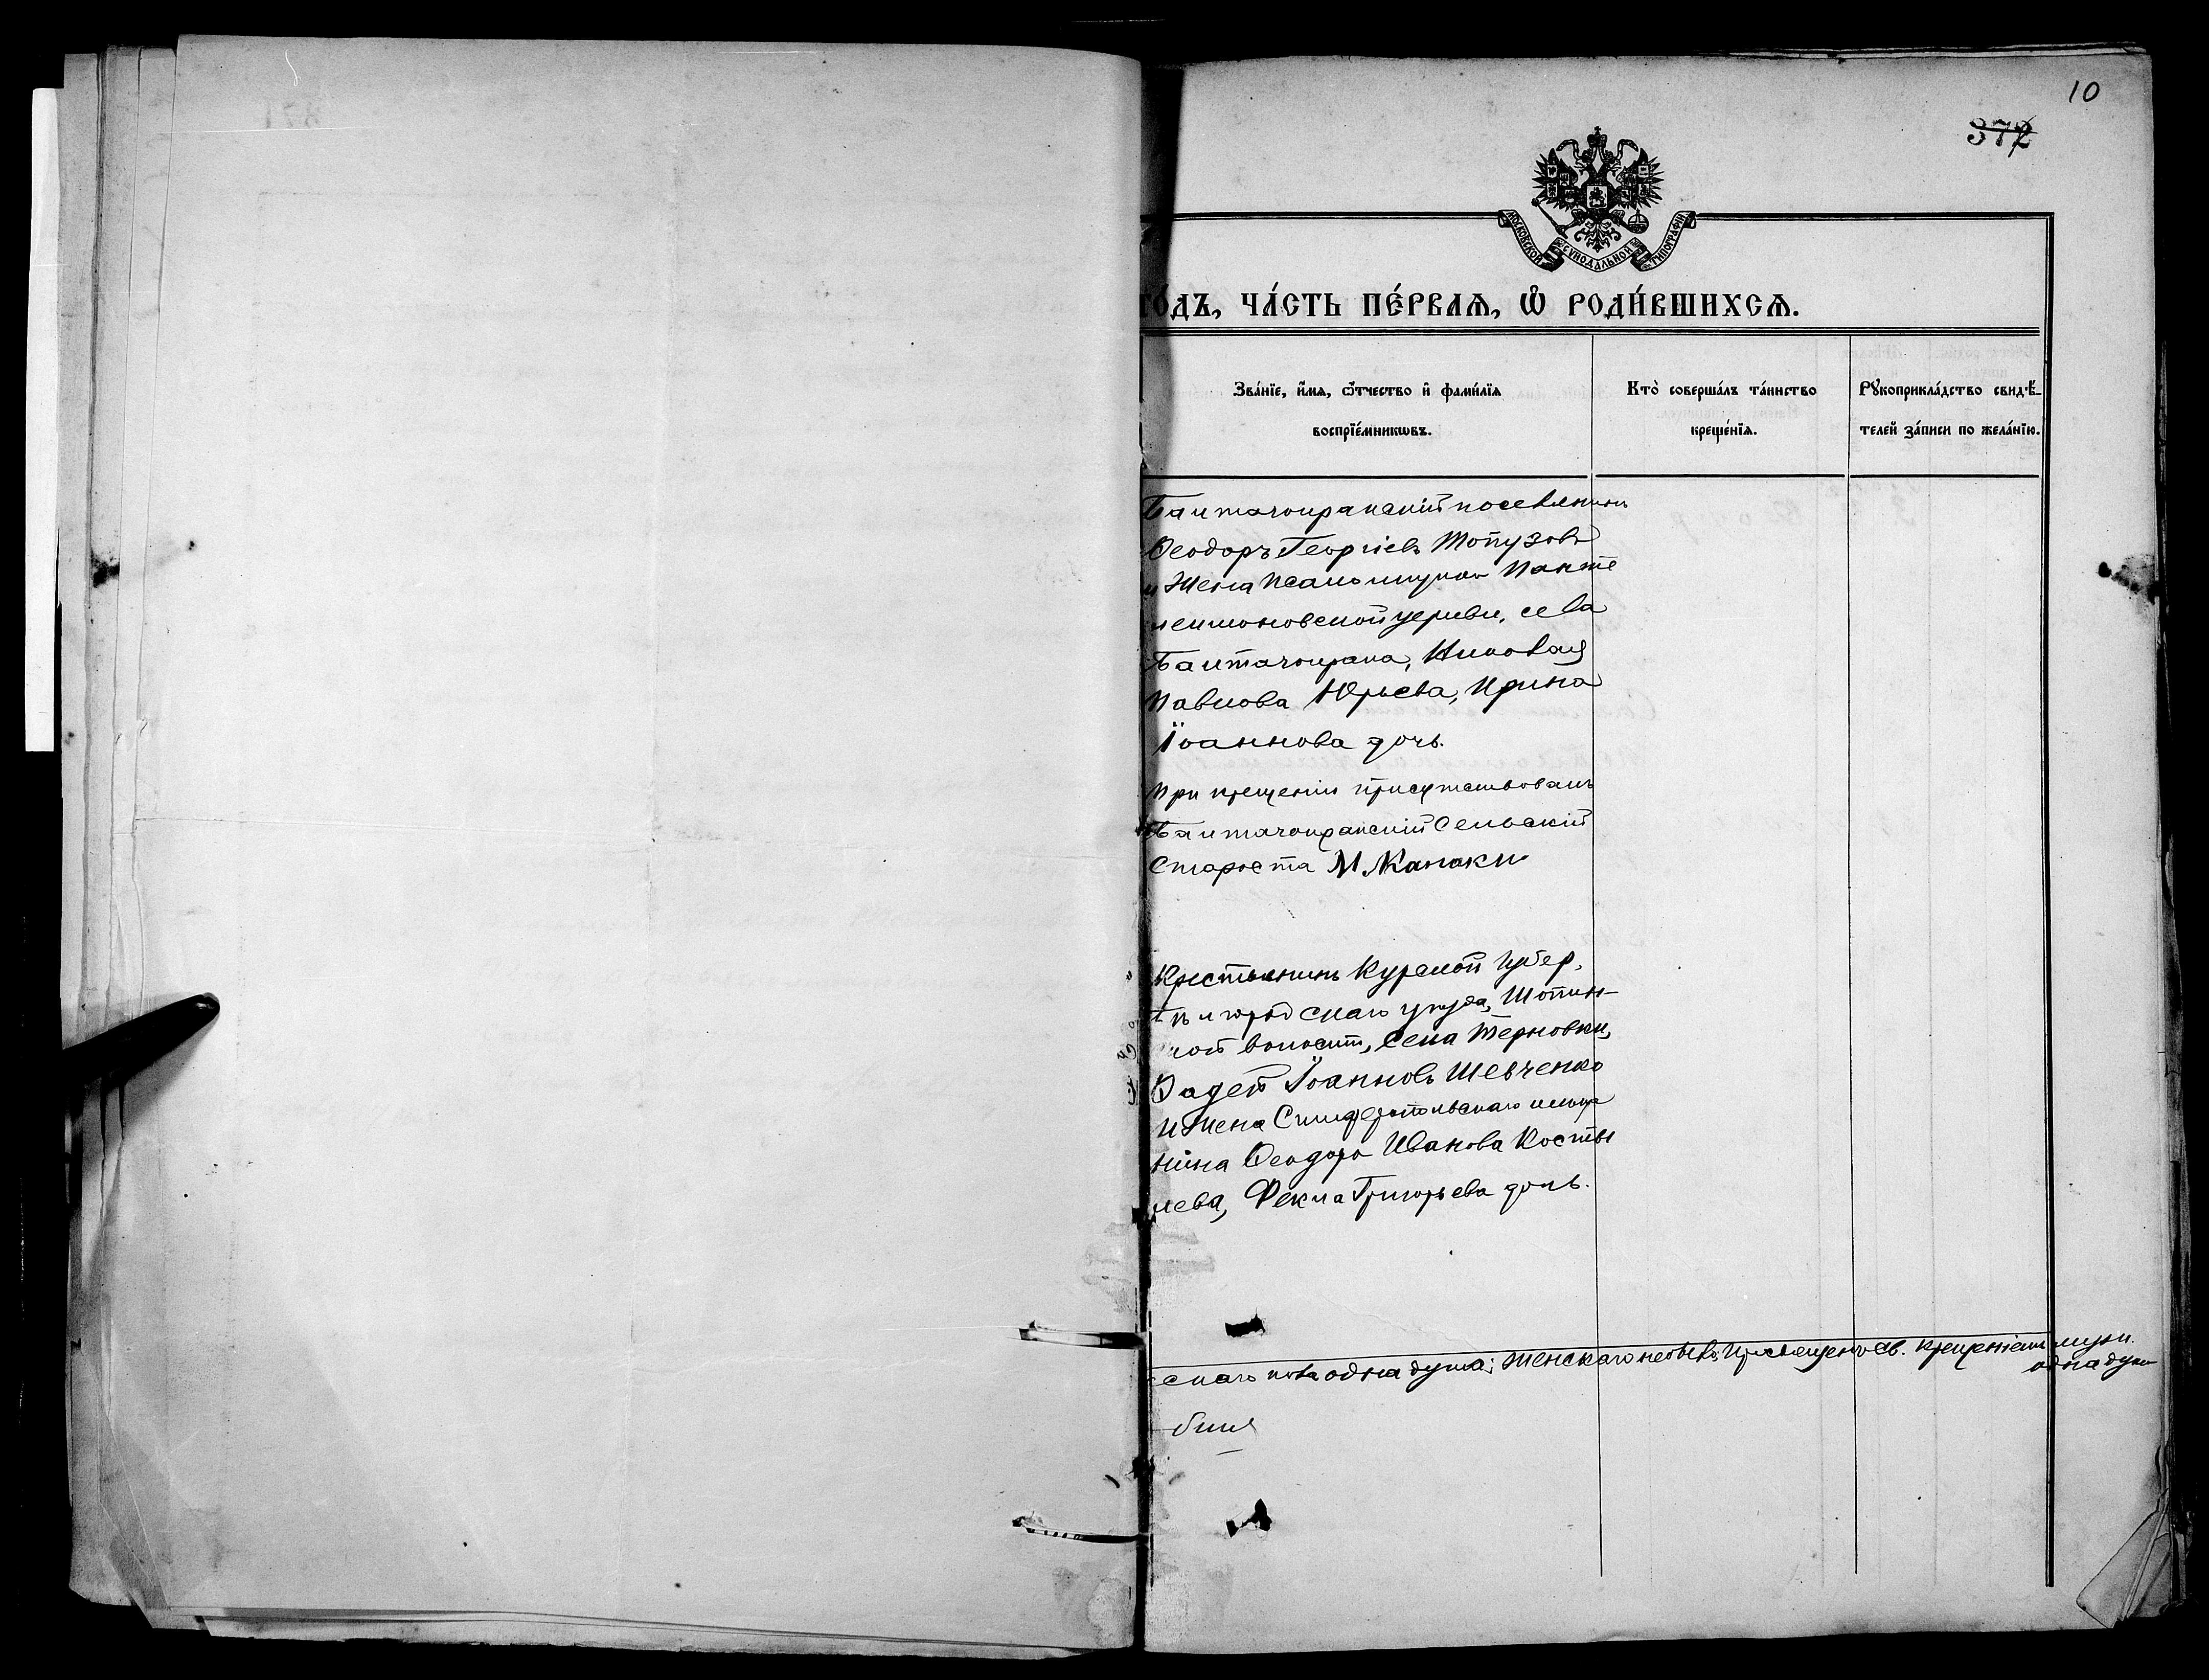 10
372
МОСКОВСКОЙ СѴНОДАЛЬНОЙ ТИПОГРАФІИ
го́дъ, ча́сть пе́рваѧ, ѡ҆ роди́вшихсѧ.
Зва́нїе, и҆́мѧ, ѻ҆́тчество и҆ фами́лїѧ
воспрїе́мникѡвъ.
Кто̀ соверша́лъ та́инство
креще́нїѧ.
Рꙋкоприкла́дство свидѣ́-
телей за́писи по жела́нїю.
Байтачокракскій поселянинъ
Ѳеодоръ Георгіевъ Топузовъ
и жена псаломщика Панте
леимоновской церкви, села
Байтачокрака, Николая
Павлова Юрьева, Ирина
Іоаннова дочь.
При крещеніи присутствовалъ
Байтачокракскій Сельскій
Староста М. Канаки
Крестьянинъ Курской губер.
Бѣлгородскаго уѣзда, Шопин-
ской волости, села Терновки,
Фадей Іоанновъ Шевченко
и жена Симферопольскаго мѣща
нина Ѳеодора Иванова Косты
лева, Фекла Григорьева дочь.
скаго пола одна душа; женскаго не было; Просвещено св. крещеніемъ мужч.
одна душа